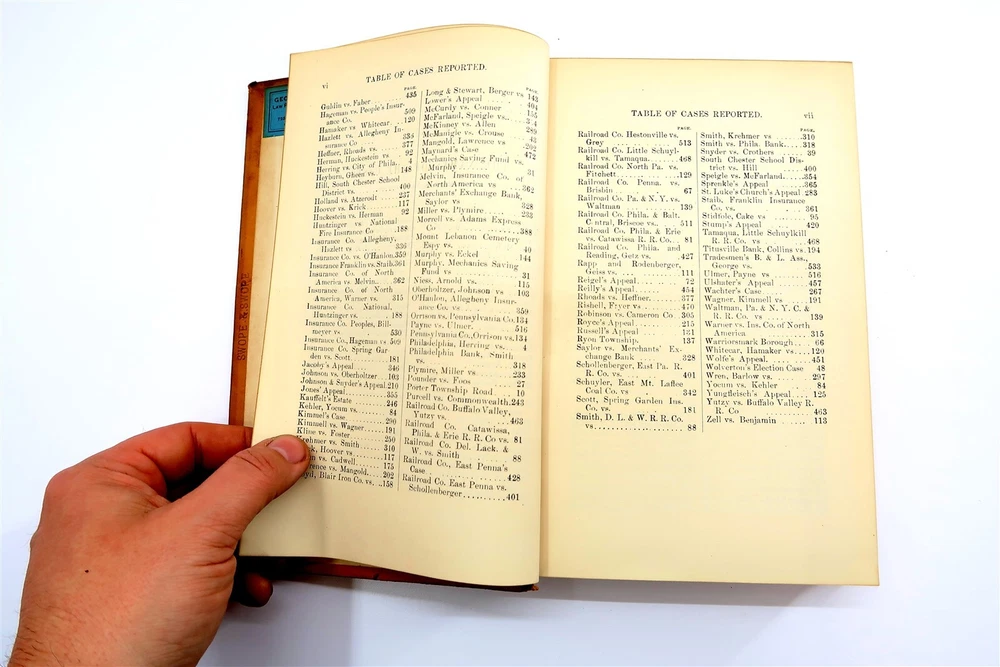 vi
TABLE OF CASES REPORTED.
PAGE.
Guhlin vs. Faber 435
Hageman vs. People's Insur-
ance Co. 509
Hamaker vs Whitecar 120
Hazlett vs. Allegheny In-
surance Co 336
Heffner, Rhoads vs. 377
Herman, Huckestein vs 92
Herring vs. City of Phila. 4
Heyburn, Gheen vs. 148
Hill, South Chester School
District vs. 400
Holland vs. Atzerodt 237
Hoover vs. Krick 117
Huckestein vs. Herman 92
Huntzinger vs National
Fire Insurance Co 188
Insurance Co. Allegheny,
Hazlett vs 336
Insurance Co. vs. O'Hanlon. 359
Insurance Franklin vs. Staib. 361
Insurance Co. of North
America vs Melvin 362
Insurance Co. of North
America, Warner vs. 315
Insurance Co. National,
Huntzinger vs. 188
Insurance Co. Peoples, Bill-
meyer vs 530
Insurance Co., Hageman vs. 509
Insurance Co. Spring Gar
den vs. Scott 181
Jacoby's Appeal 346
Johnson vs. Oberholtzer 103
Johnson & Snyder's Appeal 210
Jones' Appeal 355
Kauffelt's Estate 246
Kehler, Yocum vs. 84
Kimmel's Case 290
Kimmell vs. Wagner 191
Kline vs. Foster 250
Krehmer vs. Smith 310
ck, Hoover vs 117
n vs. Cadwell 175
rence vs. Mangold 202
yd, Blair Iron Co. vs. 158
PAGE.
Long & Stewart, Berger vs. 143
Lower's Appeal 404
McCurdy vs. Conner
McFarland, Speigle vs.
McKinney vs. Allen 289
McManigle vs. Crouse 43
Mangold, Lawrence vs 202
Maynard's Case 472
Mechanics Saving Fund vs.
Murphy 31
Melvin, Insurance Co. of
North America vs 362
Merchants' Exchange Bank,
Saylor vs 328
Miller vs. Plymire 233
Morrell vs. Adams Express
Co 388
Mount Lebanon Cemetery
Espy vs. 40
Murphy vs. Eckel 144
Murphy, Mechanics Saving
Fund vs 31
Niess, Arnold vs. 115
Oberholtzer, Johnson vs 103
O'Hanlon, Allegheny Insur-
ance Co. vs. 359
Orrison vs. Pennsylvania Co. 134
Payne vs. Ulmer. 516
Pennsylvania Co., Orrison vs. 134
Philadelphia, Herring vs. 4
Philadelphia Bank, Smith
vs. 318
Plymire, Miller vs 233
Pounder vs. Foos 27
Porter Township Road 10
Purcell vs. Commonwealth. 243
Railroad Co. Buffalo Valley,
Yutzy vs. 463
Railroad Co. Catawissa,
Phila. & Erie R. R. Co vs. 81
Railroad Co. Del. Lack. &
W. vs. Smith 88
Railroad Co., East Penna's
Case 428
Railroad Co. East Penna vs.
Schollenberger 401
TABLE OF CASES REPORTED.
vii
PAGE.
Railroad Co. Hestonville vs.
Grey 513
Railroad Co. Little Schuyl-
kill vs. Tamaqua. 468
Railroad Co. North Pa. vs.
Fitchett 129
Railroad Co. Penna. vs.
Brisbin 67
Railroad Co. Pa. & N. Y. vs.
Waltman 139
Railroad Co. Phila. & Balt.
Central, Briscoe vs. 511
Railroad Co. Phila. & Erie
vs. Catawissa R. R. Co. 81
Railroad Co. Phila. and
Reading, Getz vs. 427
Rapp and Rodenberger,
Geiss vs. 111
Reigel's Appeal 72
Reilly's Appeal 454
Rhoads vs. Heffner. 377
Risbell, Fryer vs 470
Robinson vs. Cameron Co. 305
Royce's Appeal 215
Russell's Appeal 131
Ryon Township. 137
Saylor vs. Merchants' Ex-
change Bank 328
Schollenberger, East Pa. R.
R. Co. vs. 401
Schuyler, East Mt. Laffee
Coal Co vs 342
Scott, Spring Garden Ins.
Co. vs. 181
Smith, D. L. & W. R. R. Co.
vs 88
PAGE.
Smith, Krehmer vs 310
Smith vs. Phila. Bank 318
Snyder vs. Crothers 39
South Chester School Dis-
trict vs. Hill 400
Speigle vs. McFarland. 354
Sprenkle's Appeal 365
St. Luke's Church's Appeal 283
Staib, Franklin Insurance
Co. vs. 361
Stidfole, Cake vs 95
Stump's Appeal 420
Tamaqua, Little Schuylkill
R. R. Co. vs 468
Titusville Bank, Collins vs. 194
Tradesmen's B. & L. Ass.,
George vs. 533
Ulmer, Payne vs 516
Ulshafer's Appeal 457
Wachter's Case 267
Wagner, Kimmell vs 191
Waltman, Pa. & N. Y. C. &
R. R. Co. vs 139
Warner vs. Ins. Co. of North
America 315
Warriorsmark Borough 66
Whitecar, Hamaker vs. 120
Wolfe's Appeal 451
Wolverton's Election Case 48
Wren, Barlow vs. 297
Yocum vs. Kehler 84
Yungfleisch's Appeal 125
Yutzy vs. Buffalo Valley R.
R. Co 463
Zell vs. Benjamin 113
SWOPE & SWOPE